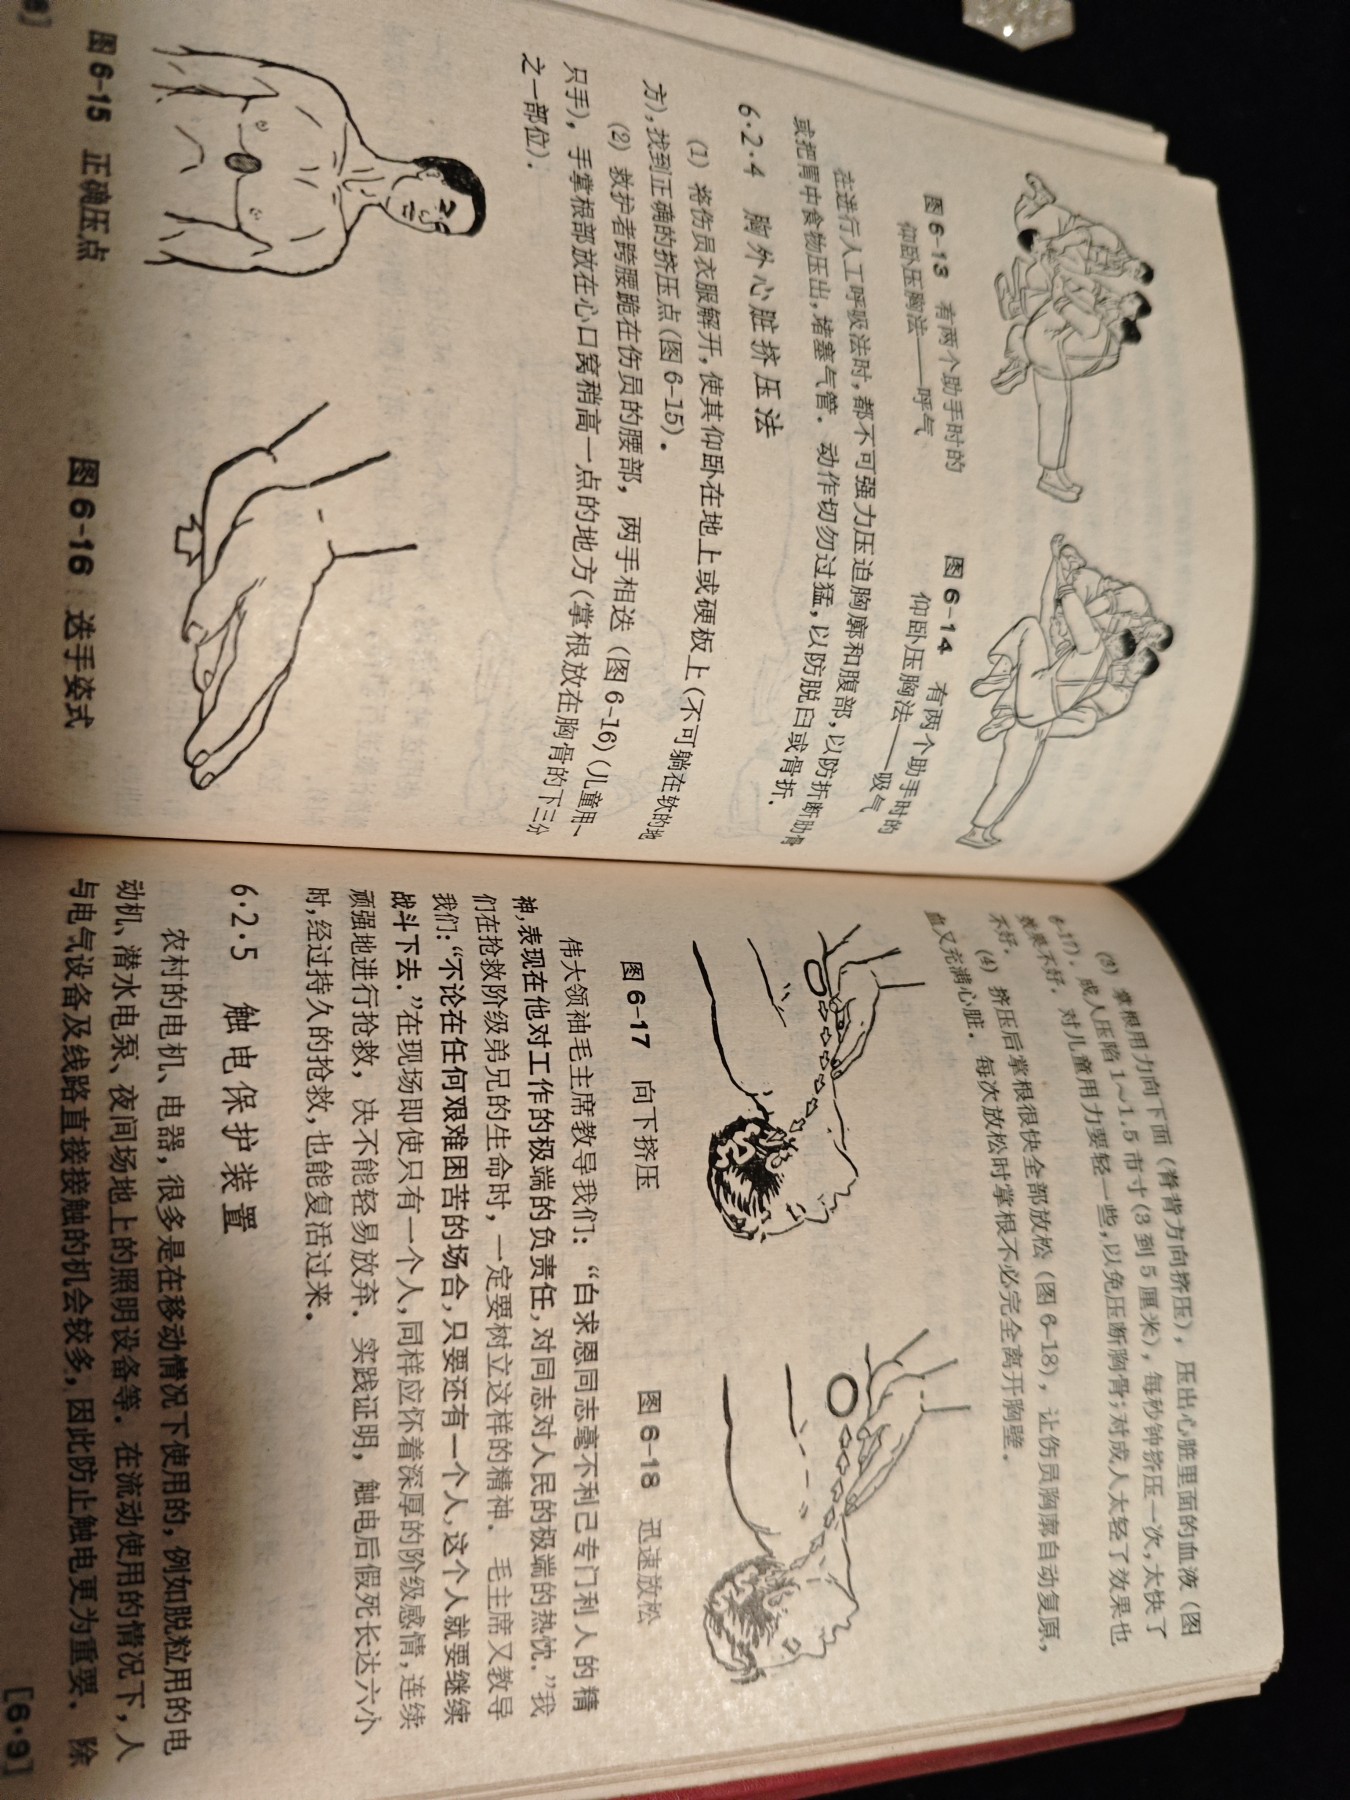 图6-13 有两个助手时的
仰卧压胸法——呼气
图6-14 有两个助手时的
仰卧压胸法——吸气
在进行人工呼吸法时,都不可强力压迫胸廓和腹部,以防折断肋骨
或把胃中食物压出,堵塞气管. 动作切勿过猛,以防脱臼或骨折.
6·2·4 胸外心脏挤压法
(1) 将伤员衣服解开,使其仰卧在地上或硬板上(不可躺在软的地
方),找到正确的挤压点(图6-15).
(2) 救护者跨腰跪在伤员的腰部, 两手相迭(图6-16)(儿童用一
只手), 手掌根部放在心口窝稍高一点的地方(掌根放在胸骨的下三分
之一部位).
图6-15 正确压点
图6-16 迭手姿式
(3) 掌根用力向下面(脊背方向挤压), 压出心脏里面的血液(图
6-17). 成人压陷1~1.5市寸(3到5厘米), 每秒钟挤压一次,太快了
效果不好. 对儿童用力要轻一些,以免压断胸骨;对成人太轻了效果也
不好.
(4) 挤压后掌根很快全部放松(图6-18), 让伤员胸廓自动复原,
血又充满心脏. 每次放松时掌根不必完全离开胸壁.
图6-17 向下挤压
图6-18 迅速放松
伟大领袖毛主席教导我们: “白求恩同志毫不利己专门利人的精
神,表现在他对工作的极端的负责任,对同志对人民的极端的热忱.”我
们在抢救阶级弟兄的生命时, 一定要树立这样的精神. 毛主席又教导
我们:“不论在任何艰难困苦的场合,只要还有一个人,这个人就要继续
战斗下去.”在现场即使只有一个人,同样应怀着深厚的阶级感情,连续
顽强地进行抢救, 决不能轻易放弃. 实践证明, 触电后假死长达六小
时,经过持久的抢救,也能复活过来.
6·2·5 触电保护装置
农村的电机、电器, 很多是在移动情况下使用的, 例如脱粒用的电
动机、潜水电泵、夜间场地上的照明设备等. 在流动使用的情况下, 人
与电气设备及线路直接接触的机会较多, 因此防止触电更为重要. 除
[6·9]